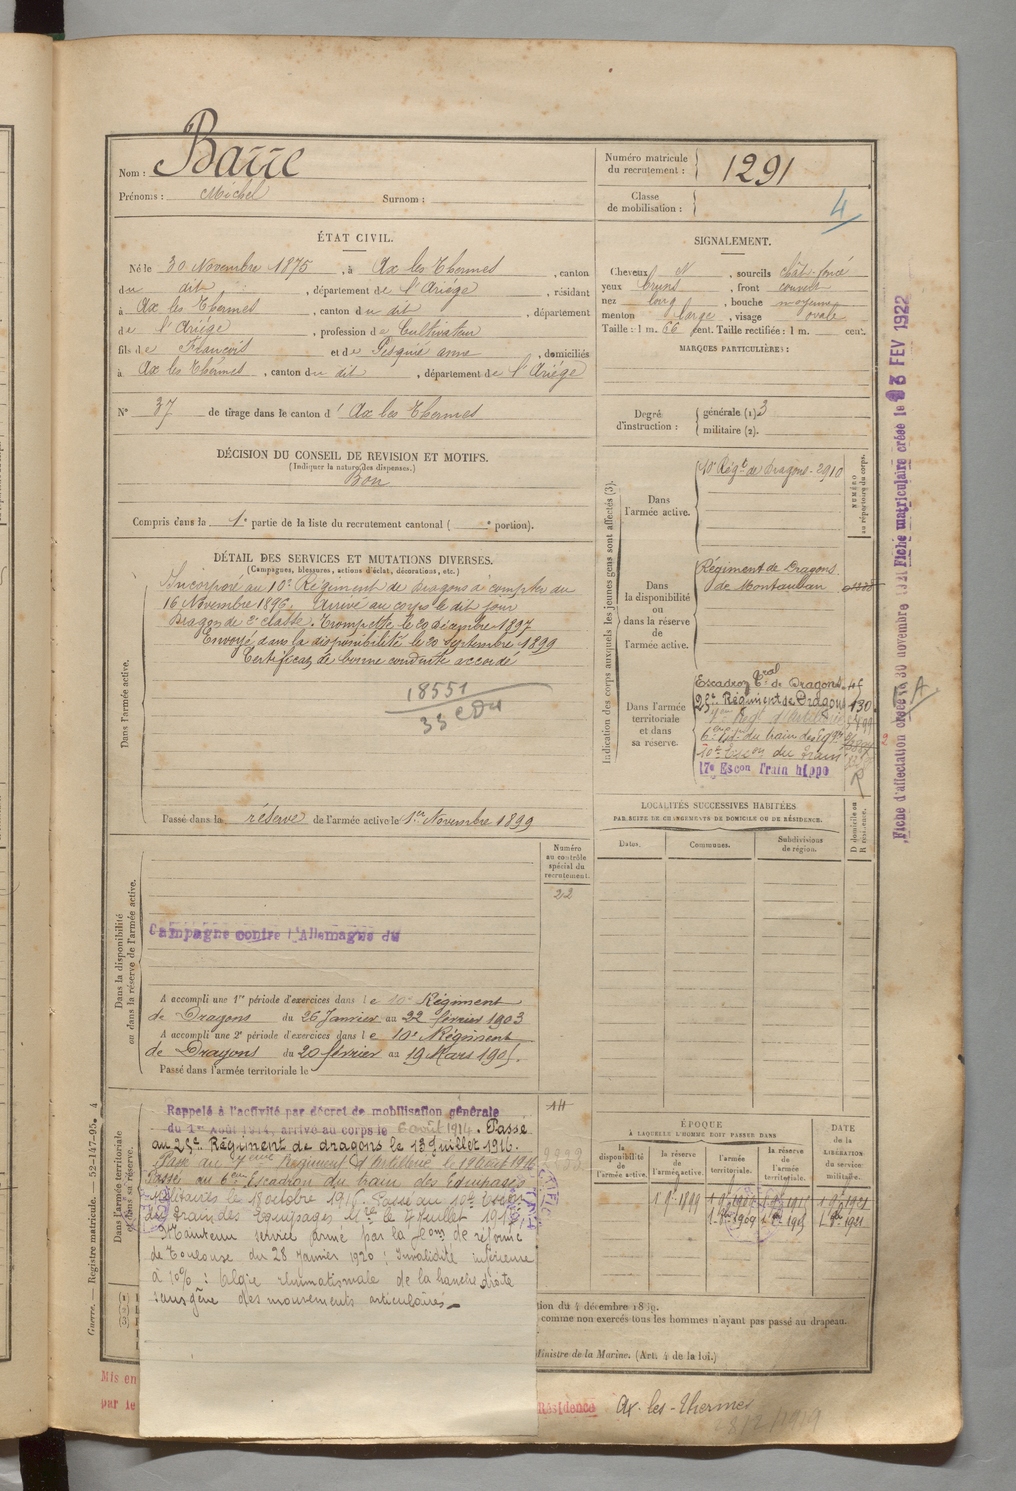 Nom : Barre
Prénoms : Michel Surnom :
Numéro matricule du recrutement : 1291
Classe de mobilisation :
4
ÉTAT CIVIL.
Né le 30 Novembre 1875, à Ax les Thermes, canton
du dit, département de l'Ariége, résidant
à Ax les Thermes, canton du dit, département
de l'Ariége, profession de Cultivateur
fils de François et de Pesquié anne, domiciliés
à Ax les Thermes, canton du dit, département de l'Ariége
N° 37 de tirage dans le canton d' Ax les Thermes
SIGNALEMENT.
Cheveux N, sourcils chât-foncé
yeux bruns, front couvert
nez long, bouche moyenne
menton large, visage ovale
Taille : 1 m. 66 cent. Taille rectifiée : 1 m. cent.
MARQUES PARTICULIÈRES :
Degré d'instruction : générale (1) 3
militaire (2).
DÉCISION DU CONSEIL DE REVISION ET MOTIFS.
(Indiquer la nature des dispenses.)
Bon
Compris dans la 1e partie de la liste du recrutement cantonal ( e portion).
DÉTAIL DES SERVICES ET MUTATIONS DIVERSES.
(Campagnes, blessures, actions d'éclat, décorations, etc.)
Dans l'armée active.
Incorporé au 10e Régiment de Dragons à compter du
16 Novembre 1896. Arrivé au corps le dit jour
Dragon de 2e classe. Trompette le 29 décembre 1897
Envoyé dans la disponibilité le 20 Septembre 1899
Certificat de bonne conduite accordé
18551
33
Passé dans la réserve de l'armée active le 1er Novembre 1899
Indication des corps auxquels les jeunes gens sont affectés (3).
NUMÉRO au répertoire du corps.
Dans l'armée active.
10e Régt de Dragons - 2910
Dans la disponibilité ou dans la réserve de l'armée active.
Régiment de Dragons
de Montauban
Dans l'armée territoriale et dans sa réserve.
Escadron Tral de Dragons
25e Régiment de Dragons 130
10e Escon du Train
17e Escon Train hippo
R
LOCALITÉS SUCCESSIVES HABITÉES
PAR SUITE DE CHANGEMENTS DE DOMICILE OU DE RÉSIDENCE.
Dates. Communes. Subdivisions de région.
D domicile ou R résidence.
Dans la disponibilité ou dans la réserve de l'armée active.
Numéro au contrôle spécial du recrutement.
22
Campagne contre l'Allemagne du
A accompli une 1re période d'exercices dans le 10e Régiment
de Dragons du 26 Janvier au 22 février 1903
A accompli une 2e période d'exercices dans le 10e Régiment
de Dragons du 20 février au 19 Mars 1905.
Passé dans l'armée territoriale le
Dans l'armée territoriale et dans sa réserve.
Rappelé à l'activité par décret de mobilisation générale
du 1er Août 1914, arrivé au corps le 6 août 1914. Passé
au 25e Régiment de dragons le 13 Juillet 1916.
Passé au 9ème Régiment d'Artillerie le 19 Août 1916
Passé au 6ème Escadron du train des Equipages
Militaires le 18 octobre 1916. Passé au 10e Escon
du train des Equipages Mre le 4 Juillet 1917
Maintenu service armé par la Cons de réforme
de Toulouse du 28 Janvier 1920 ; Invalidité inférieure
à 10% : algie rhumatismale de la hanche droite
sans gêne des mouvements articulaires
ÉPOQUE
À LAQUELLE L'HOMME DOIT PASSER DANS
la disponibilité de l'armée active. la réserve de l'armée active. l'armée territoriale. la réserve de l'armée territoriale.
DATE de la LIBÉRATION du service militaire.
1 9bre 1899
1er 8bre 1909 1er 8bre 1915 1er 8bre 1921
tion du 4 décembre 1889.
comme non exercés tous les hommes n'ayant pas passé au drapeau.
Ministre de la Marine. (Art. 4 de la loi.)
Mis en
par le
Résidence Ax-les-Thermes
8/2/1919
Guerre. — Registre matricule. — 52-147-95. 4
Fiche matriculaire créée le 13 FEV 1922